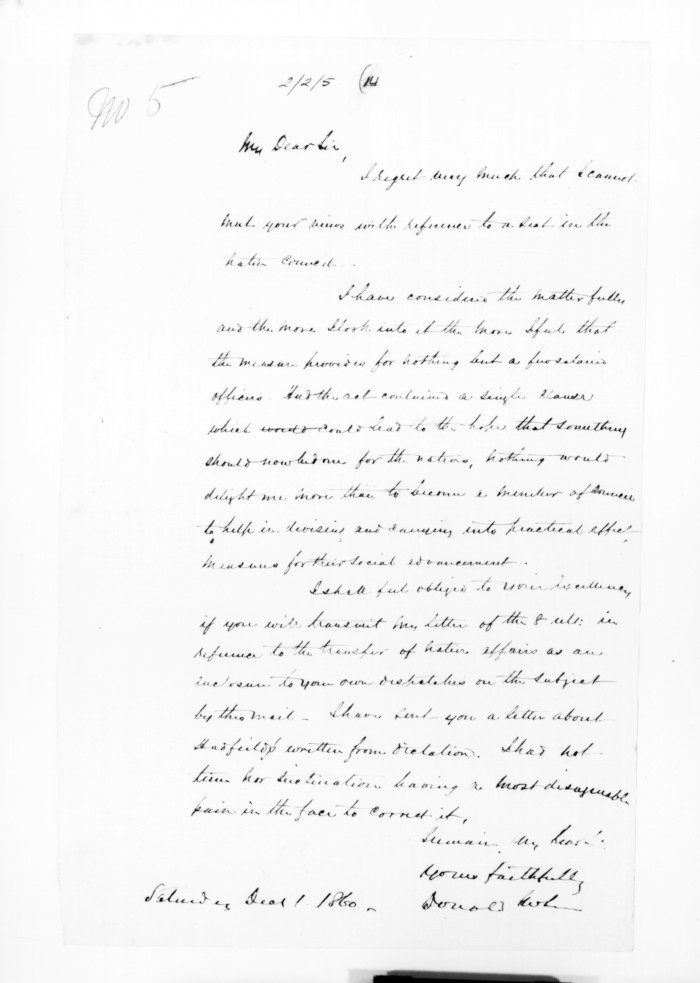 No 5
2/2/5 (14
My Dear Sir,
I regret very much that I cannot
meet your views with reference to a seat in the
native Council.
I have considered the matter fully
and the more I look into it the more I feel that
the measure provides for nothing but a few salaried
officers. Had the act contained a single clause
which would could lead to the hope that something
should now be done for the natives, nothing would
delight me more than to become a member of Council
to help in devising and carrying into practical effect,
measures for their social advancement.
I shall feel obliged to your Excellency
if you will transmit my letter of the 8 ult: in
reference to the transfer of native affairs as an
inclosure to your own dispatches on the subject
by this mail - I have sent you a letter about
written from dictation. I had not
time nor inclination having a most disagreeable
pain in the face to correct it,
I remain, My Dear
Yours faithfully
Donald
Saturday Decr 1 1860 -